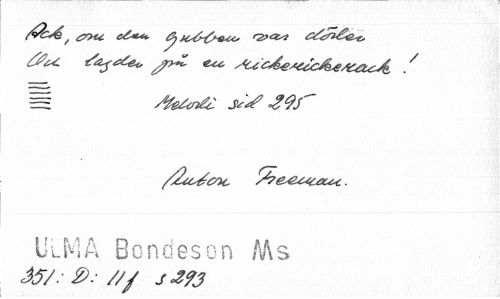 Ack, om den gubben var döder
Och lagder på en rickerickerack!
Melodi sid 295
Anton Freeman.
ULMA Bondeson Ms
351: D: 11f s 293